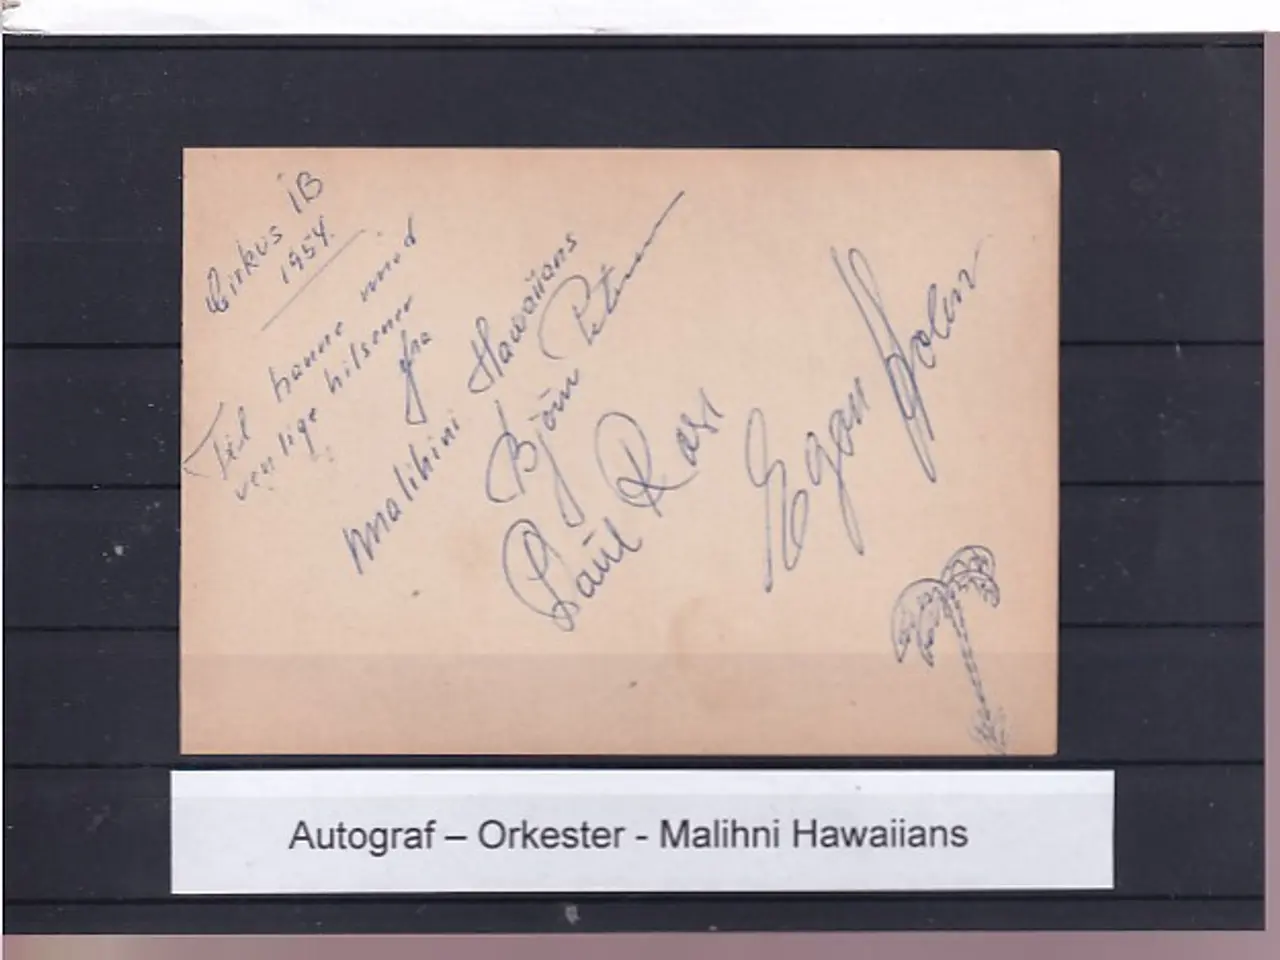 Cirkus IB
1954.
Til Hanne med
venlige hilsener
fra
Malihini Hawaiians
Björn Petersen
Paul Rose
Egon Holm
Autograf – Orkester - Malihni Hawaiians